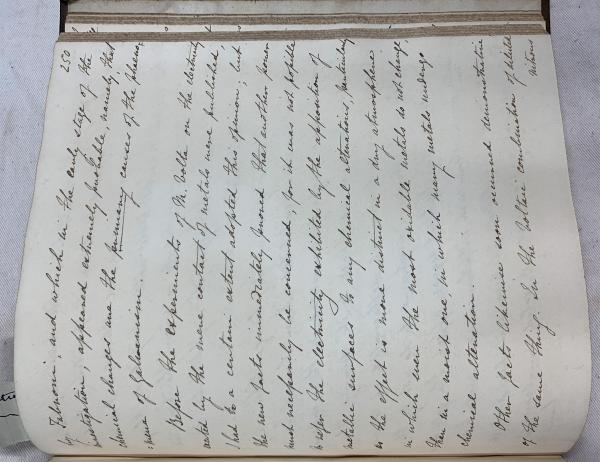 250
by Fabroni; and which in the early stage of the
investigation, appeared extremely probable, namely, that
chemical changes are the primary causes of the phæno-
:mena of Galvanism.
Before the experiments of M. Volta on the electricity
excited by the mere contact of metals were published
I had to a certain extent adopted this opinion; but
the new facts immediately proved that another power
must necessarily be concerned; for it was not possible
to refer the electricity exhibited by the apposition of
metallic surfaces to any chemical alterations, particularly
as the effect is more distinct in a dry atmosphere
in which even the most oxidable metals do not change,
than in a moist one, in which many metals undergo
chemical alteration.
Other facts likewise soon occurred demonstrative
of the same thing. In the Voltaic combination of diluted
nitrous